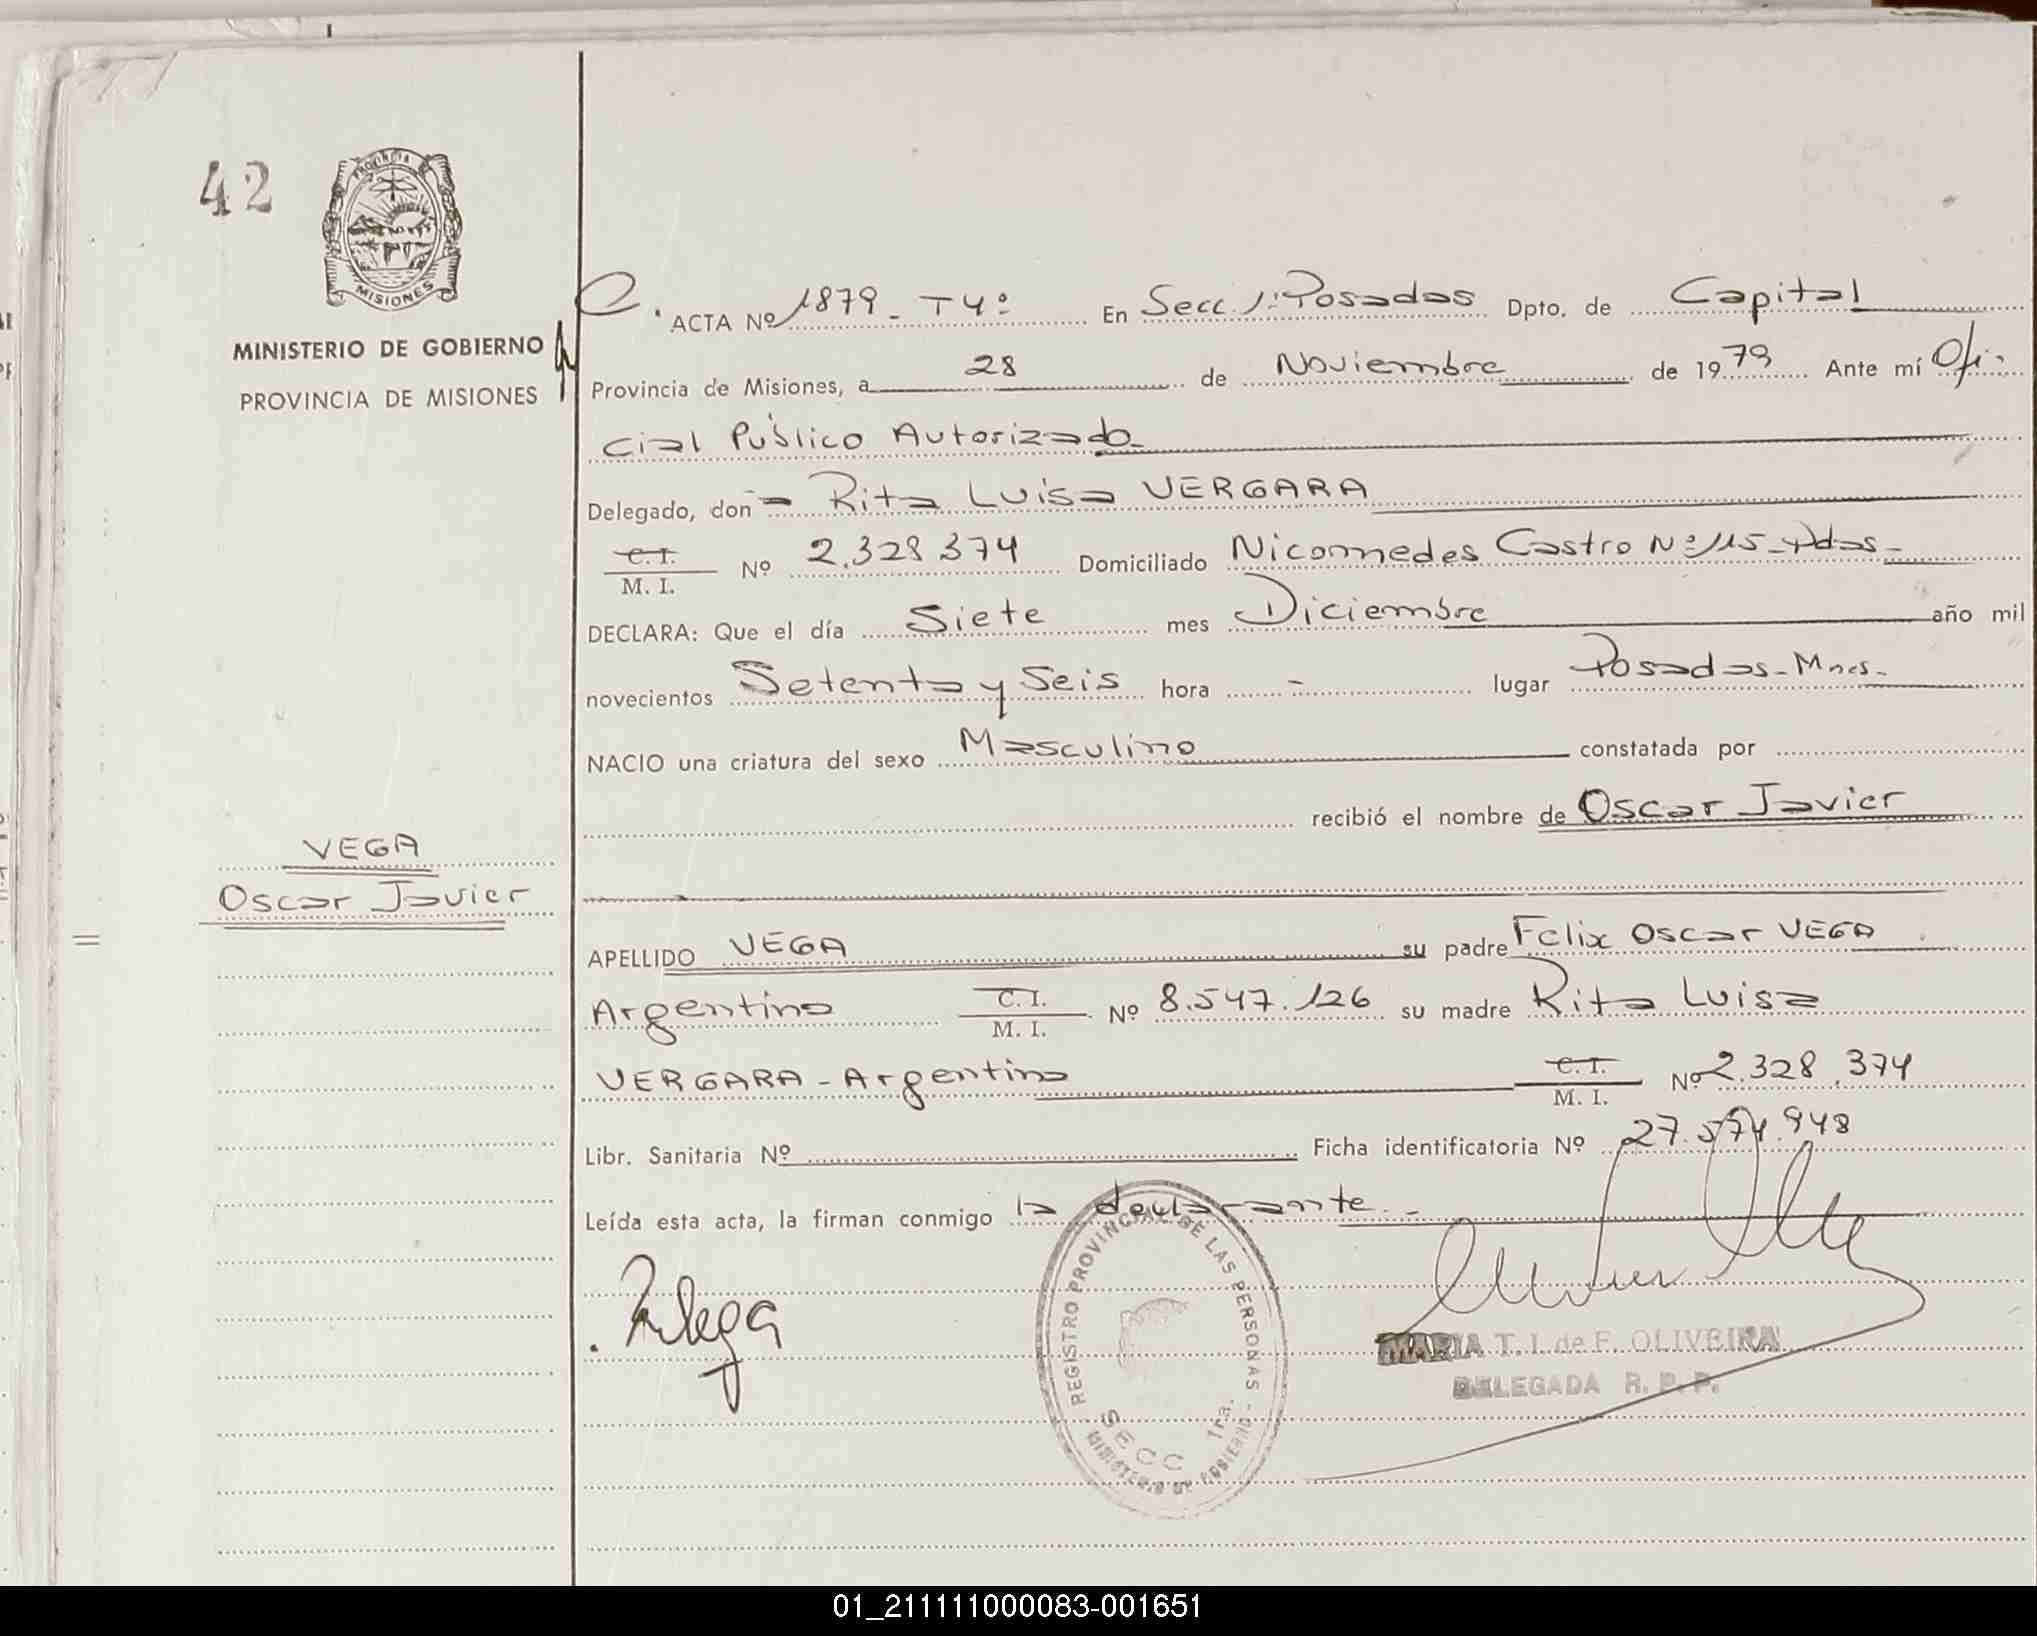 42
PROVINCIA
MISIONES
MINISTERIO DE GOBIERNO
PROVINCIA DE MISIONES
ACTA Nº 1879 - T4º En Secc 1ª Posadas Dpto. de Capital
Provincia de Misiones, a 28 de Noviembre de 1979 Ante mí Ofi-
cial Público Autorizado
Delegado, don a Rita Luisa VERGARA
C. I.
M. I. Nº 2.328.374 Domiciliado Nicomedes Castro Nº 115 - Pdas -
DECLARA: Que el día Siete mes Diciembre año mil
novecientos Setenta y Seis hora - lugar Posadas - Mnes -
NACIO una criatura del sexo Masculino constatada por
recibió el nombre de Oscar Javier
VEGA
Oscar Javier
APELLIDO VEGA su padre Felix Oscar VEGA
Argentino C. I. M. I. Nº 8.547.126 su madre Rita Luisa
VERGARA - Argentina C. I. M. I. Nº 2.328.374
Libr. Sanitaria Nº Ficha identificatoria Nº 27.574.948
Leída esta acta, la firman conmigo la declarante. -
REGISTRO PROVINCIAL DE LAS PERSONAS - MINISTERIO DE GOBIERNO
SECC 1ra.
MARIA T. I. de F. OLIVEIRA
DELEGADA R. P. P.
01_211111000083-001651